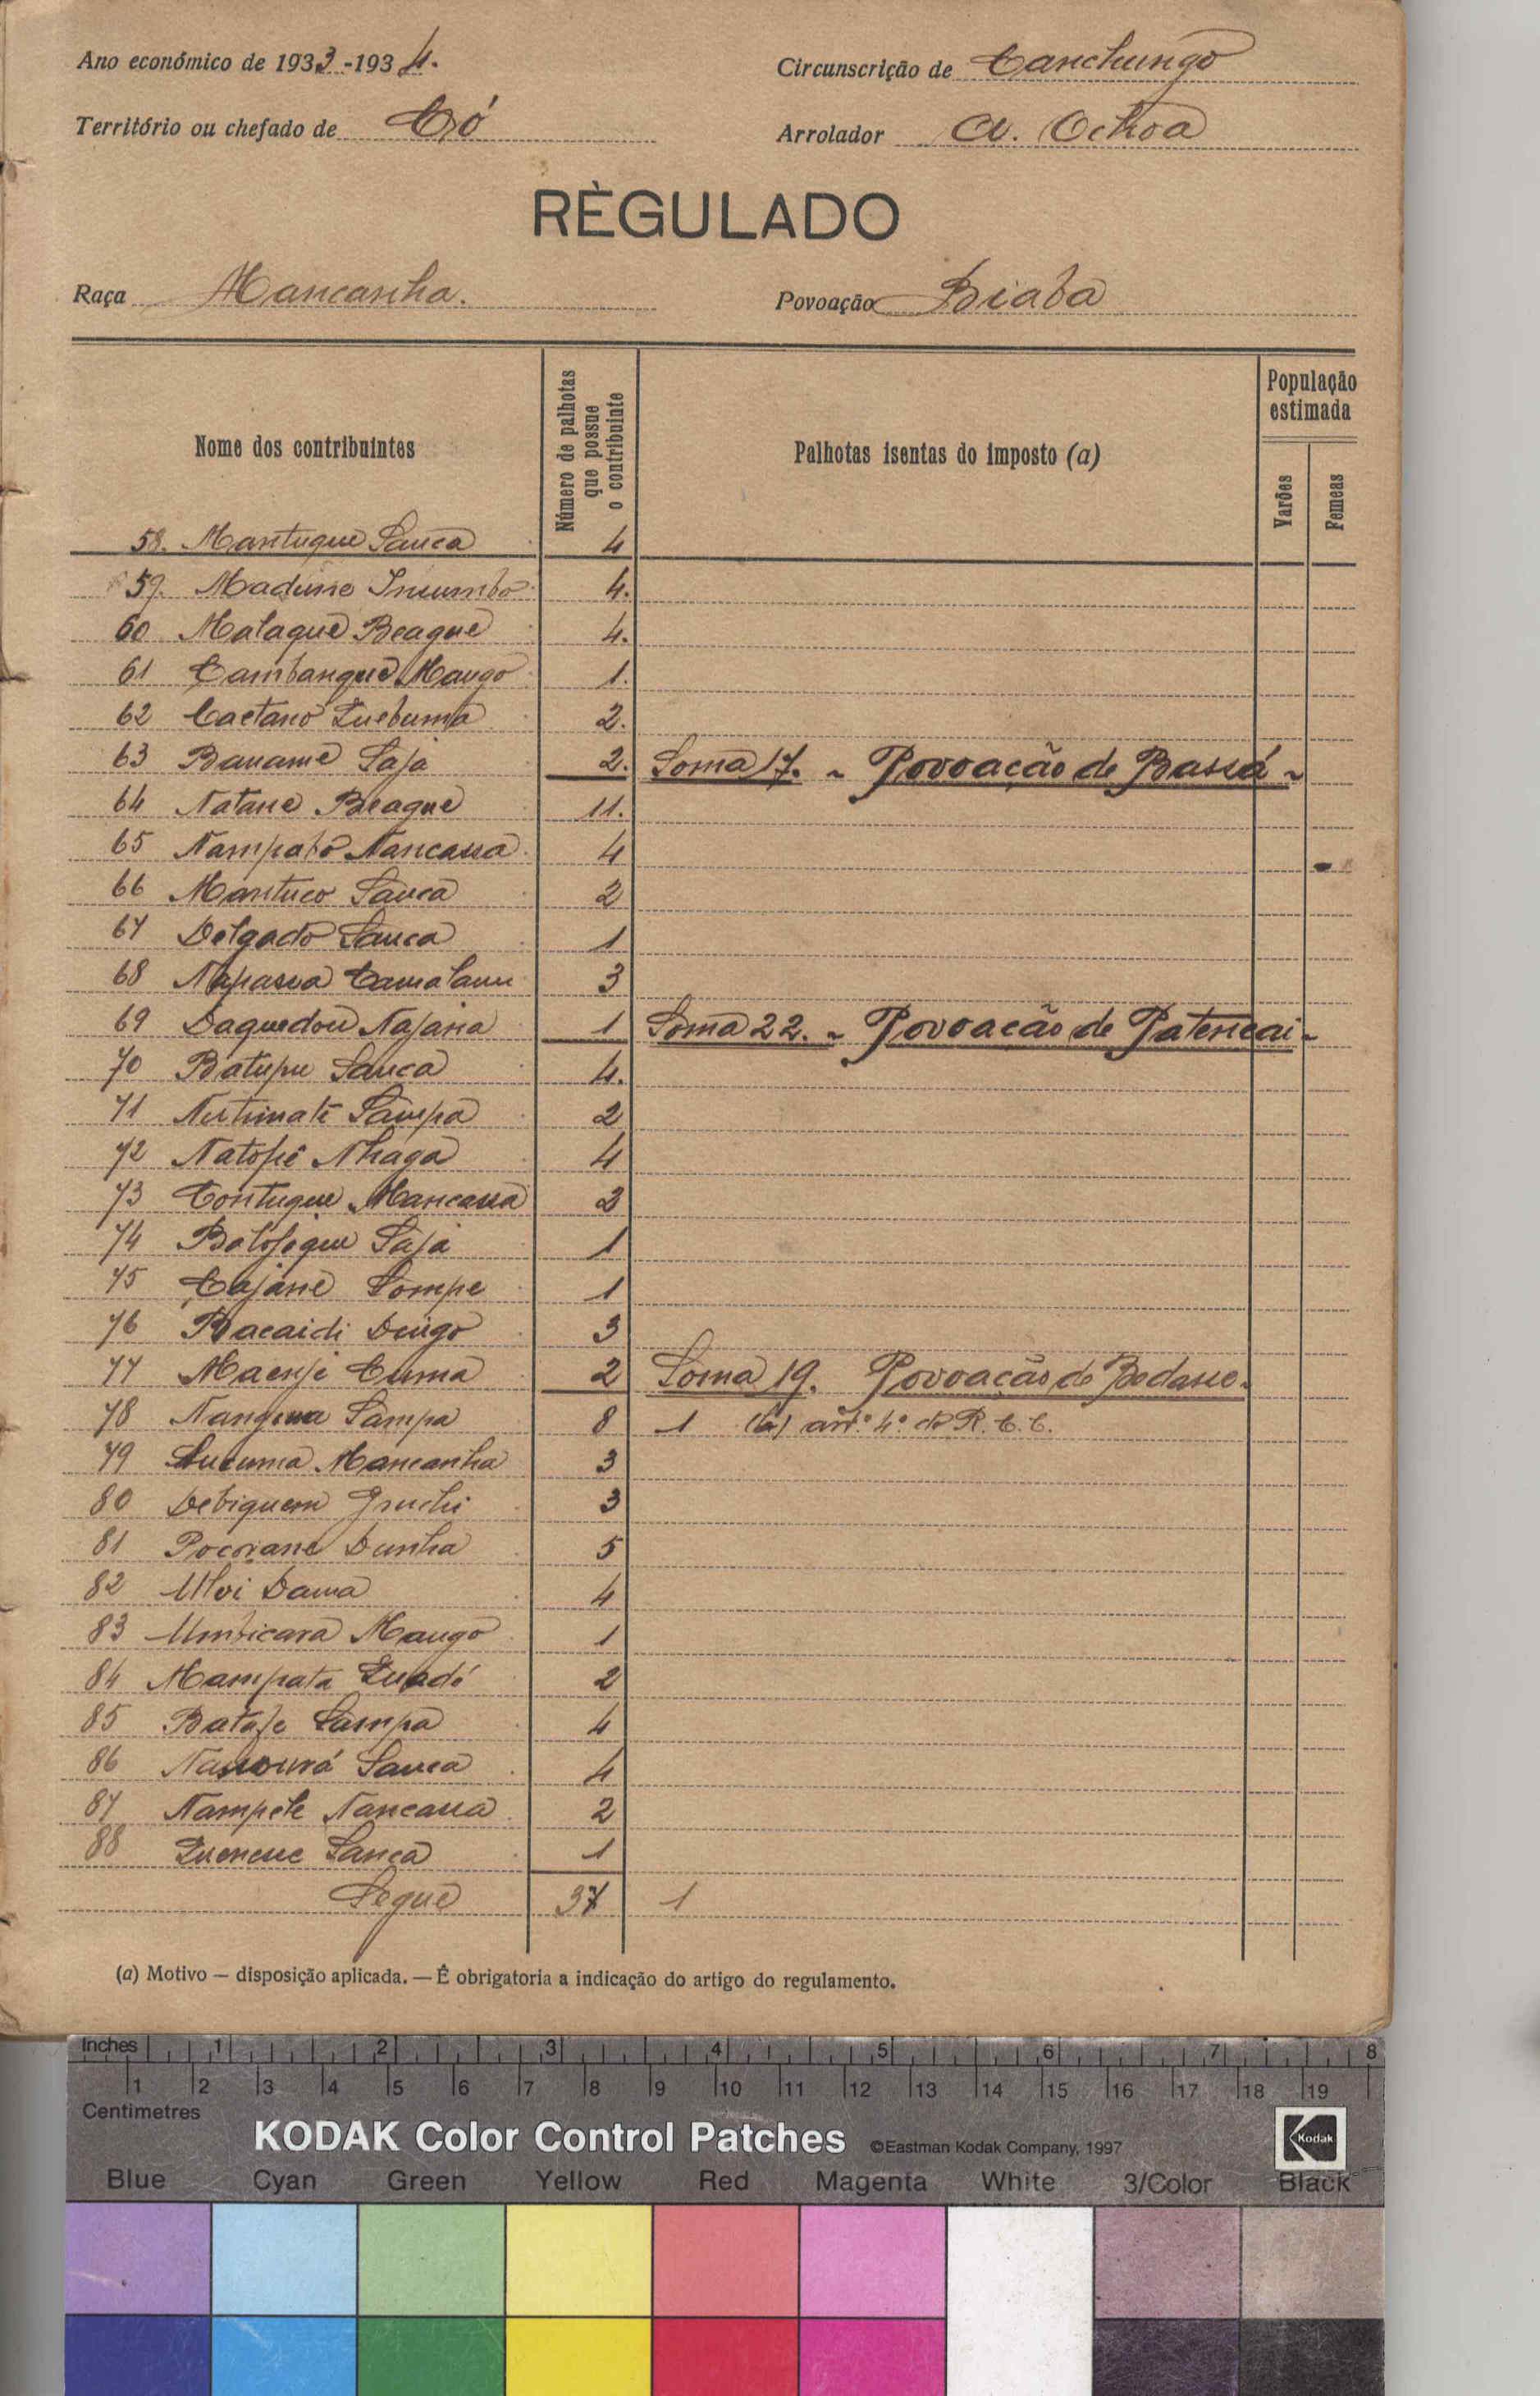 Ano económico de 1933-1934.
Circunscrição de Canchungo
Território ou chefado de Có
Arrolador A. Ochoa
RÈGULADO
Raça Mancanha.
Povoação Biaba
Nome dos contribuintes
Número de palhotas que possue o contribuinte
Palhotas isentas do imposto (a)
População estimada
Varões
Femeas
58. Mantuque Sanca 4
59. Madune Incumbo 4.
60 Malague Beague 4.
61 Cambangue Mango 1.
62 Caetano Quebuma 2.
63 Baname Saja 2. Soma 17. ~ Povoação de Bassá ~
64 Natane Beague 11.
65 Nampabo Nancassa 4
66 Mantuco Sanca 2
67 Delgado Sanca 1
68 3
69 Daquedou Najana 1 Soma 22. ~ Povoação de Patencai ~
70 Batupu Sanca 4.
71 Sampa 2
72 Natopé Nhaga 4
73 Contuque Mancassa 2
74 Saja 1
75 Cajane Sompe 1
76 Bacaidi Dingo 3
77 Maenje Cuma 2 Soma 19. Povoação de
78 Sampa 8 1 (b) art.º 4º do R. C. C.
79 Mancanha 3
80 Debiquem 3
81 Dunha 5
82 Uloi Dama 4
83 Umbicara Mango 1
84 Mampata Quadé 2
85 Bataje Sampa 4
86 Sanca 4
87 Nampele Nancassa 2
88 Sanca 1
Segue 37 1
(a) Motivo — disposição aplicada. — É obrigatoria a indicação do artigo do regulamento.
Inches 1 2 3 4 5 6 7 8
1 2 3 4 5 6 7 8 9 10 11 12 13 14 15 16 17 18 19
Centimetres
KODAK Color Control Patches ©Eastman Kodak Company, 1997 Kodak
Blue Cyan Green Yellow Red Magenta White 3/Color Black